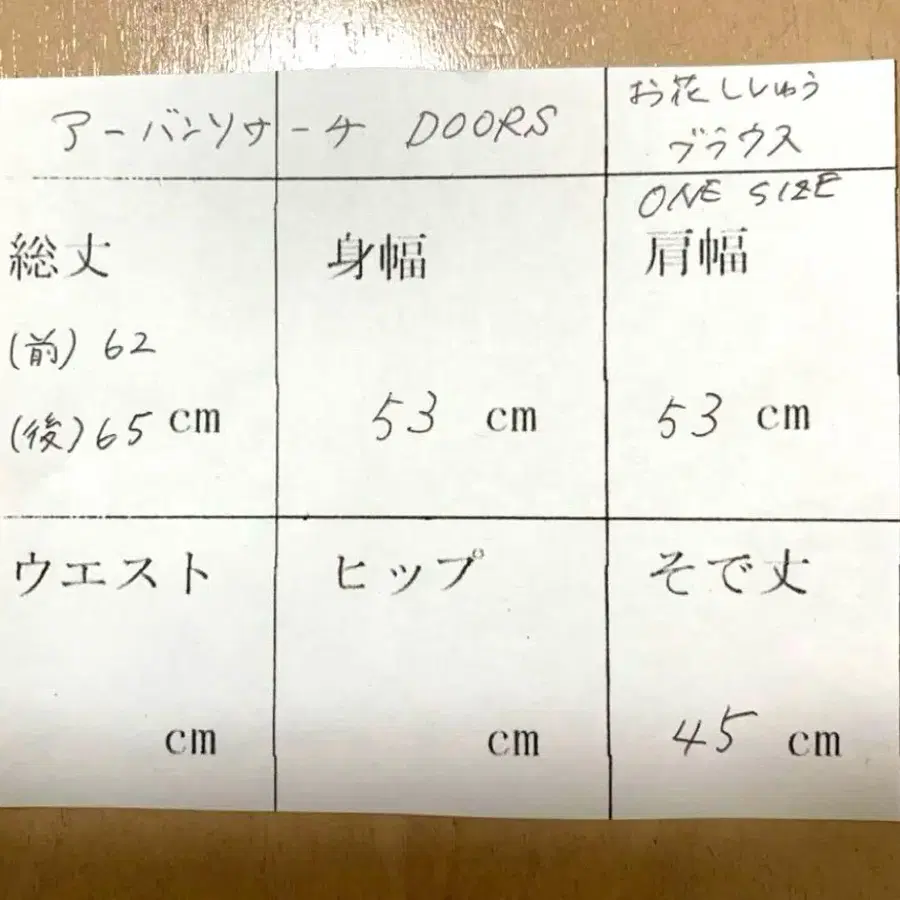 アーバンソサーチ DOORS
お花ししゅう
ブラウス
ONE SIZE
総丈
身幅
肩幅
(前) 62
(後) 65 cm
53 cm
53 cm
ウエスト
ヒップ
そで丈
cm
cm
45 cm